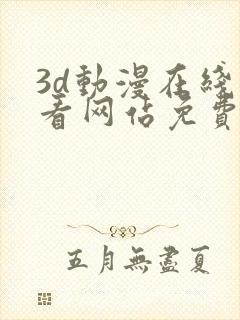 3d動漫在綫
看网佔免費
五月無盡夏